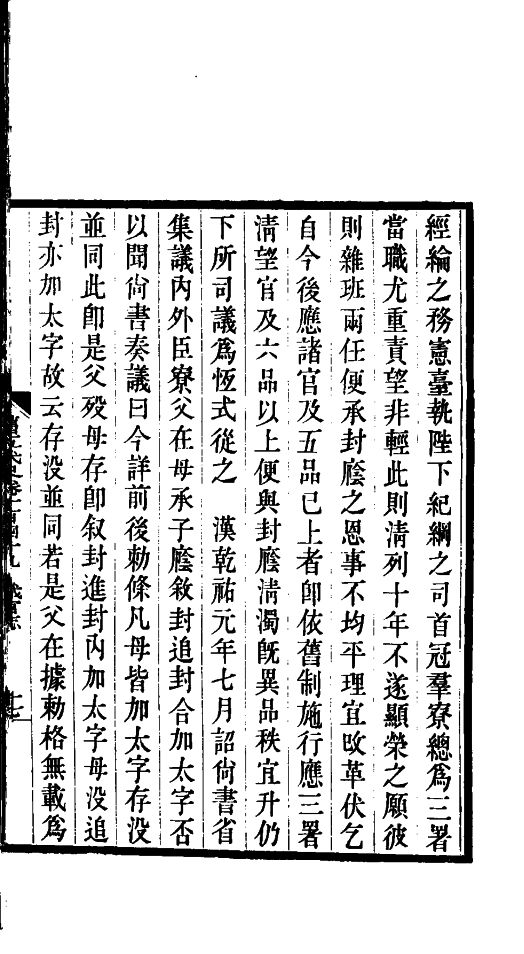 經綸之務憲臺執陛下紀綱之司首冠羣寮總爲三署
當職尤重責望非輕此則清列十年不遂顯榮之願彼
則雜班兩任便承封廕之恩事不均平理宜改革伏乞
自今後應諸官及五品已上者卽依舊制施行應三署
清望官及六品以上便與封廕清濁旣異品秩宜升仍
下所司議爲恆式從之　漢乾祐元年七月詔尙書省
集議內外臣寮父在母承子廕敘封追封合加太字否
以聞尙書奏議曰今詳前後勅條凡母皆加太字存沒
並同此卽是父殁母存卽叙封進封內加太字母没追
封亦加太字故云存没並同若是父在據勅格無載爲